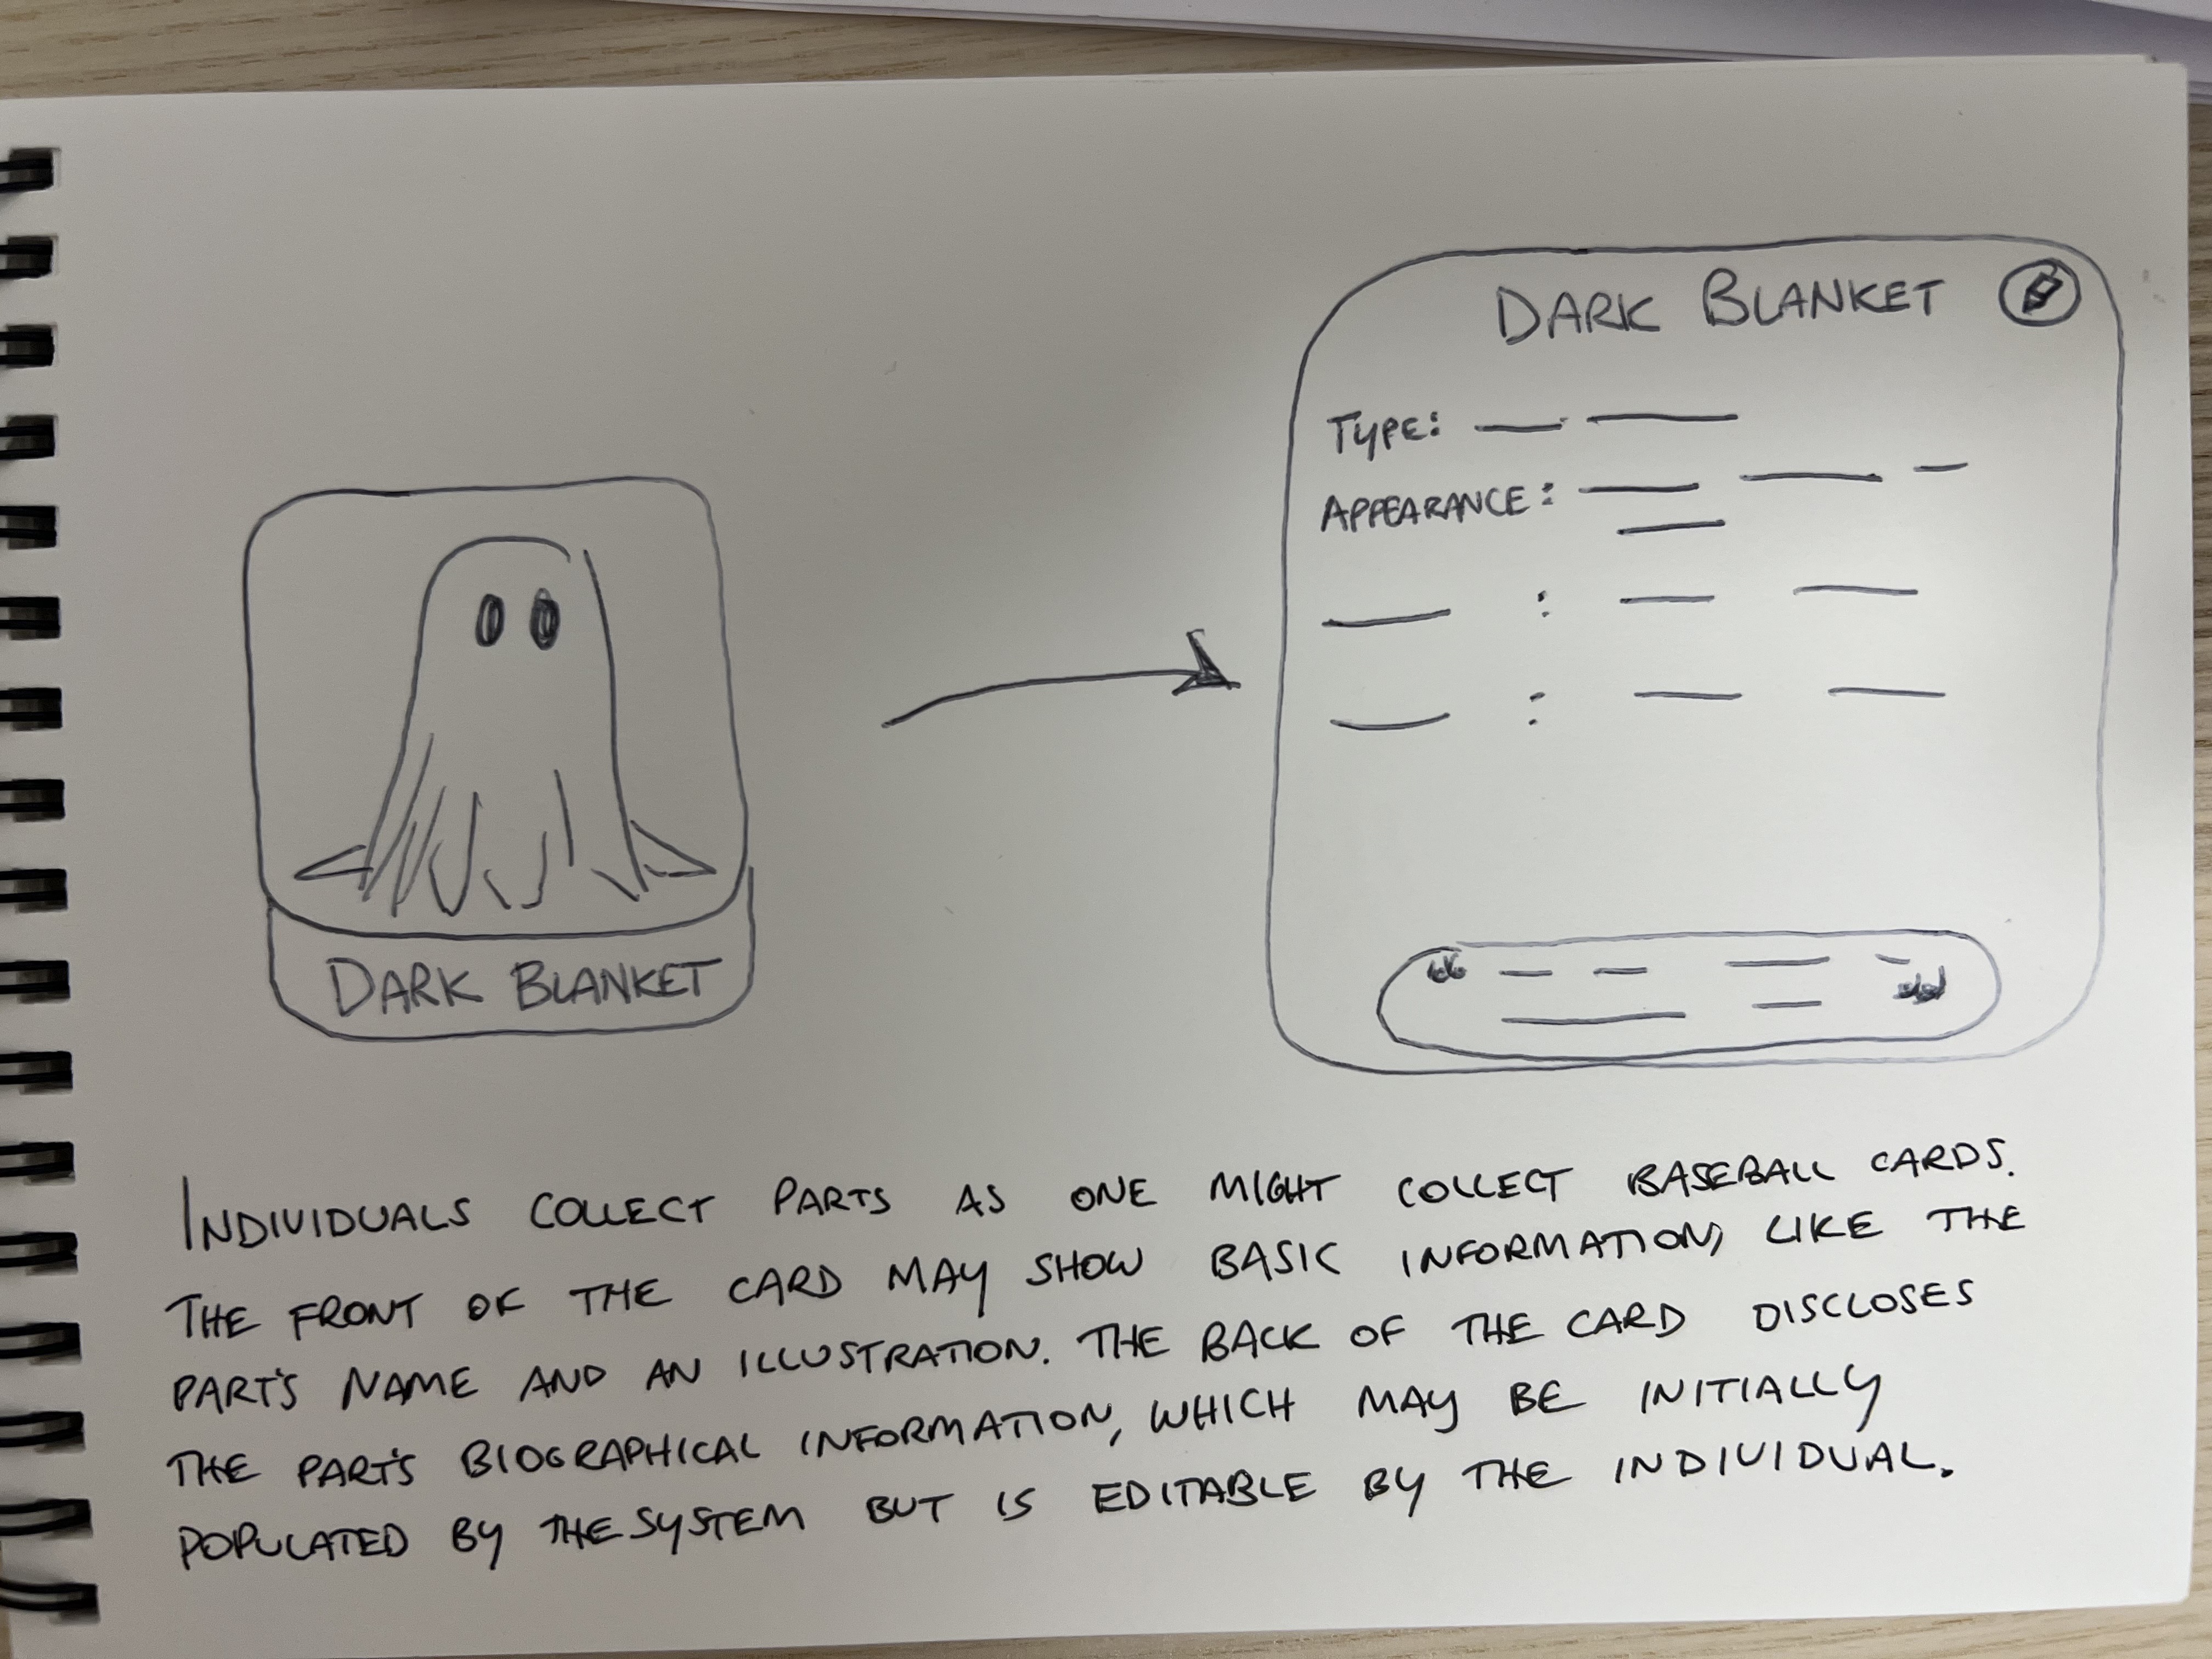 DARK BLANKET
TYPE:
APPEARANCE:
:
:
“ ”
DARK BLANKET
INDIVIDUALS COLLECT PARTS AS ONE MIGHT COLLECT BASEBALL CARDS.
THE FRONT OF THE CARD MAY SHOW BASIC INFORMATION, LIKE THE
PART'S NAME AND AN ILLUSTRATION. THE BACK OF THE CARD DISCLOSES
THE PART'S BIOGRAPHICAL INFORMATION, WHICH MAY BE INITIALLY
POPULATED BY THE SYSTEM BUT IS EDITABLE BY THE INDIVIDUAL.